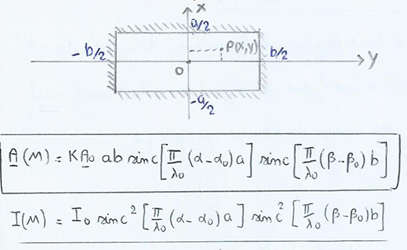 x
a/2
P(x,y)
-b/2
b/2
y
O
-a/2
A(M) = KA₀ ab sinc[π/λ₀ (α-α₀)a] sinc[π/λ₀ (β-β₀)b]
I(M) = I₀ sinc² [π/λ₀ (α-α₀)a] sinc² [π/λ₀ (β-β₀)b]